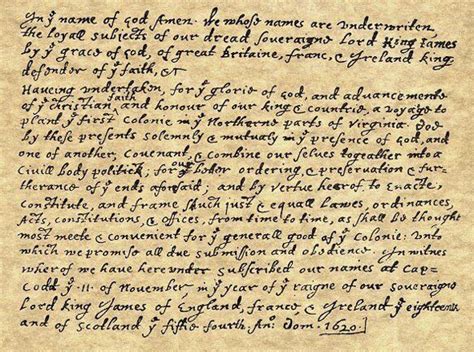 In yᵉ name of God Amen. We whose names are underwriten,
the loyall subjects of our dread soveraigne Lord King James
by yᵉ grace of God, of great Britaine, franc, & Ireland king,
defender of yᵉ faith, &c
Haveing undertaken, for yᵉ glorie of God, and advancemente
of yᵉ christian faith and honour of our king & countrie, a voyage to
plant yᵉ first colonie in yᵉ Northerne parts of Virginia. doe
by these presents solemnly & mutualy in yᵉ presence of God, and
one of another, covenant, & combine our selves togeather into a
civill body politick; for our better ordering, & preservation & fur-
therance of yᵉ ends aforesaid; and by vertue hearof to enacte,
constitute, and frame shuch just & equall lawes, ordinances,
Acts, constitutions, & offices, from time to time, as shall be thought
most meete & convenient for yᵉ generall good of yᵉ Colonie: unto
which we promise all due submission and obedience. In witnes
wherof we have hereunder subscribed our names at Cap-
Codd yᵉ .11. of November, in yᵉ year of yᵉ raigne of our soveraigne
Lord king James of England, france, & Ireland yᵉ eighteenth
and of Scotland yᵉ fiftie fourth. Anᵒ: Dom. 1620.